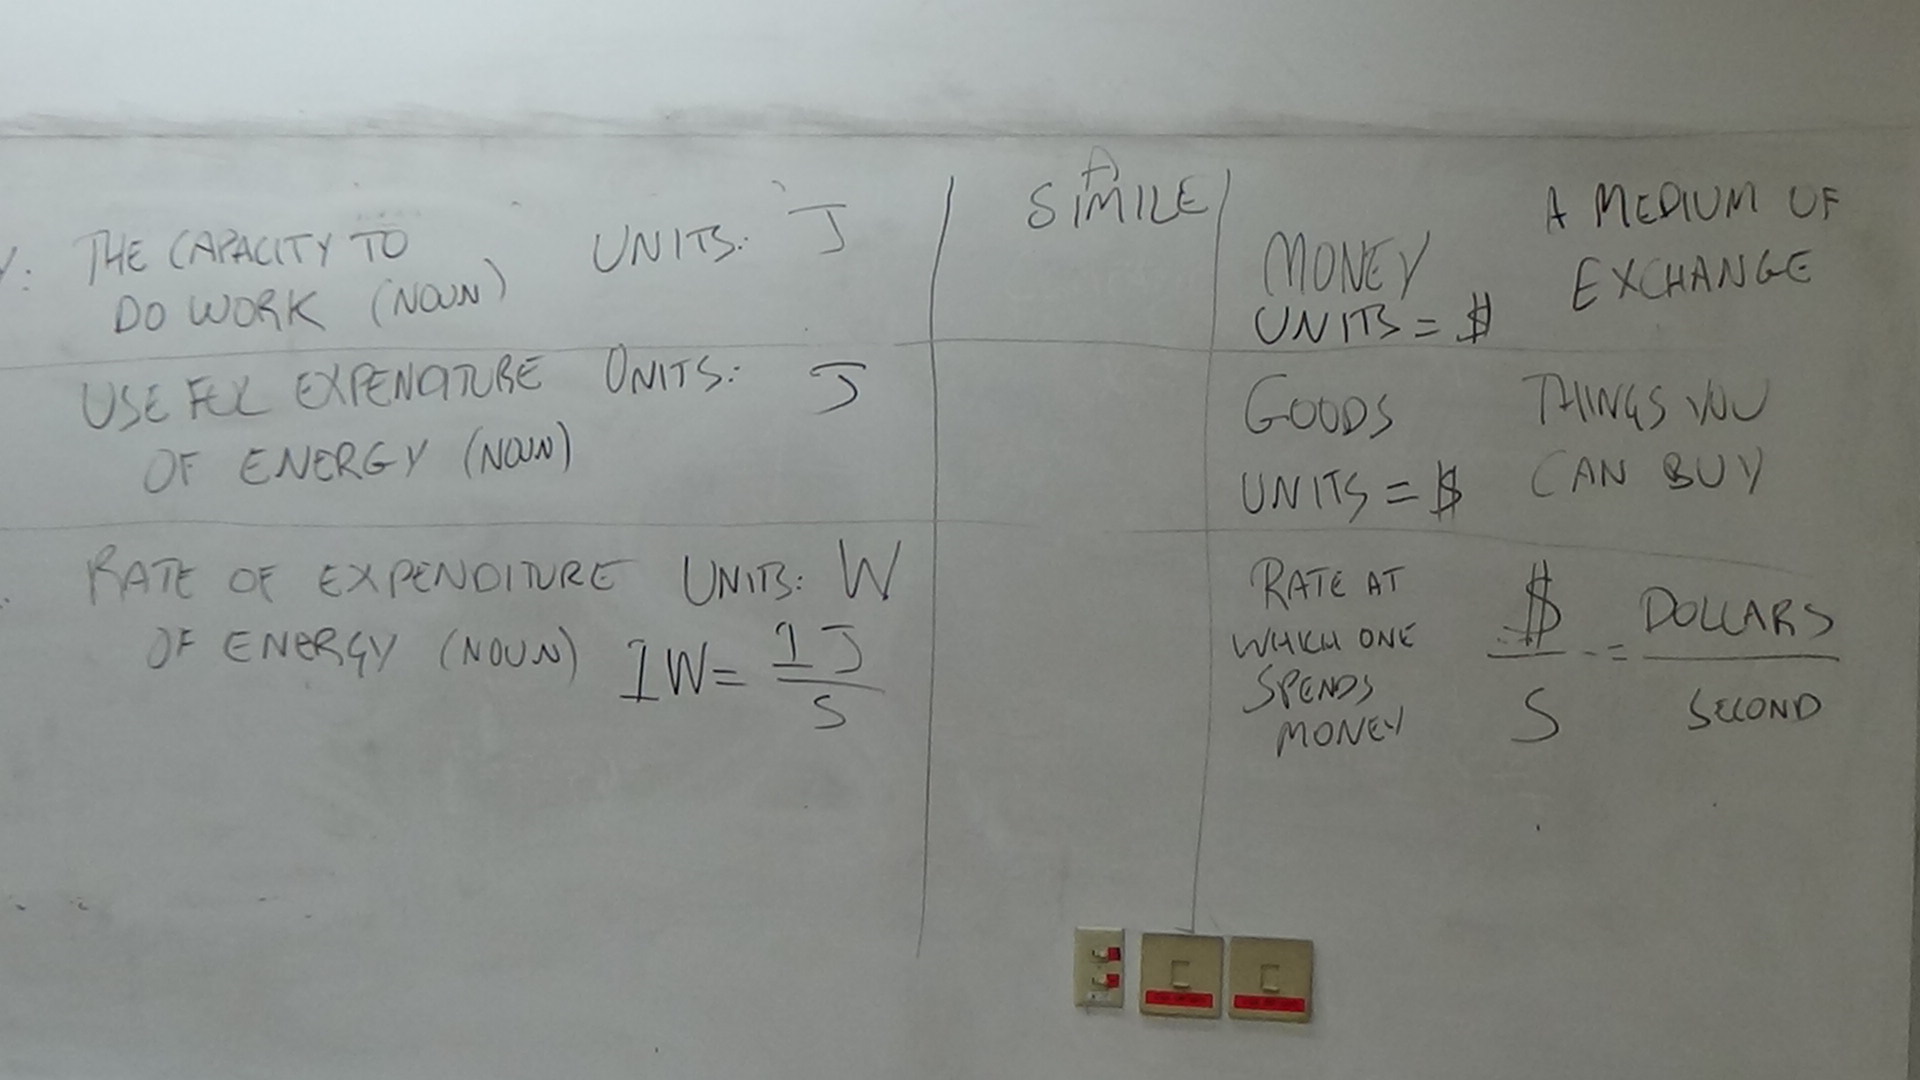 A
SIMILE
Y: THE CAPACITY TO UNITS: J
DO WORK (NOUN)
MONEY A MEDIUM OF
UNITS = $ EXCHANGE
USEFUL EXPENDITURE UNITS: J
OF ENERGY (NOUN)
GOODS THINGS YOU
UNITS = $ CAN BUY
RATE OF EXPENDITURE UNITS: W
OF ENERGY (NOUN) 1W = 1J
S
RATE AT $ = DOLLARS
WHICH ONE S SECOND
SPENDS
MONEY